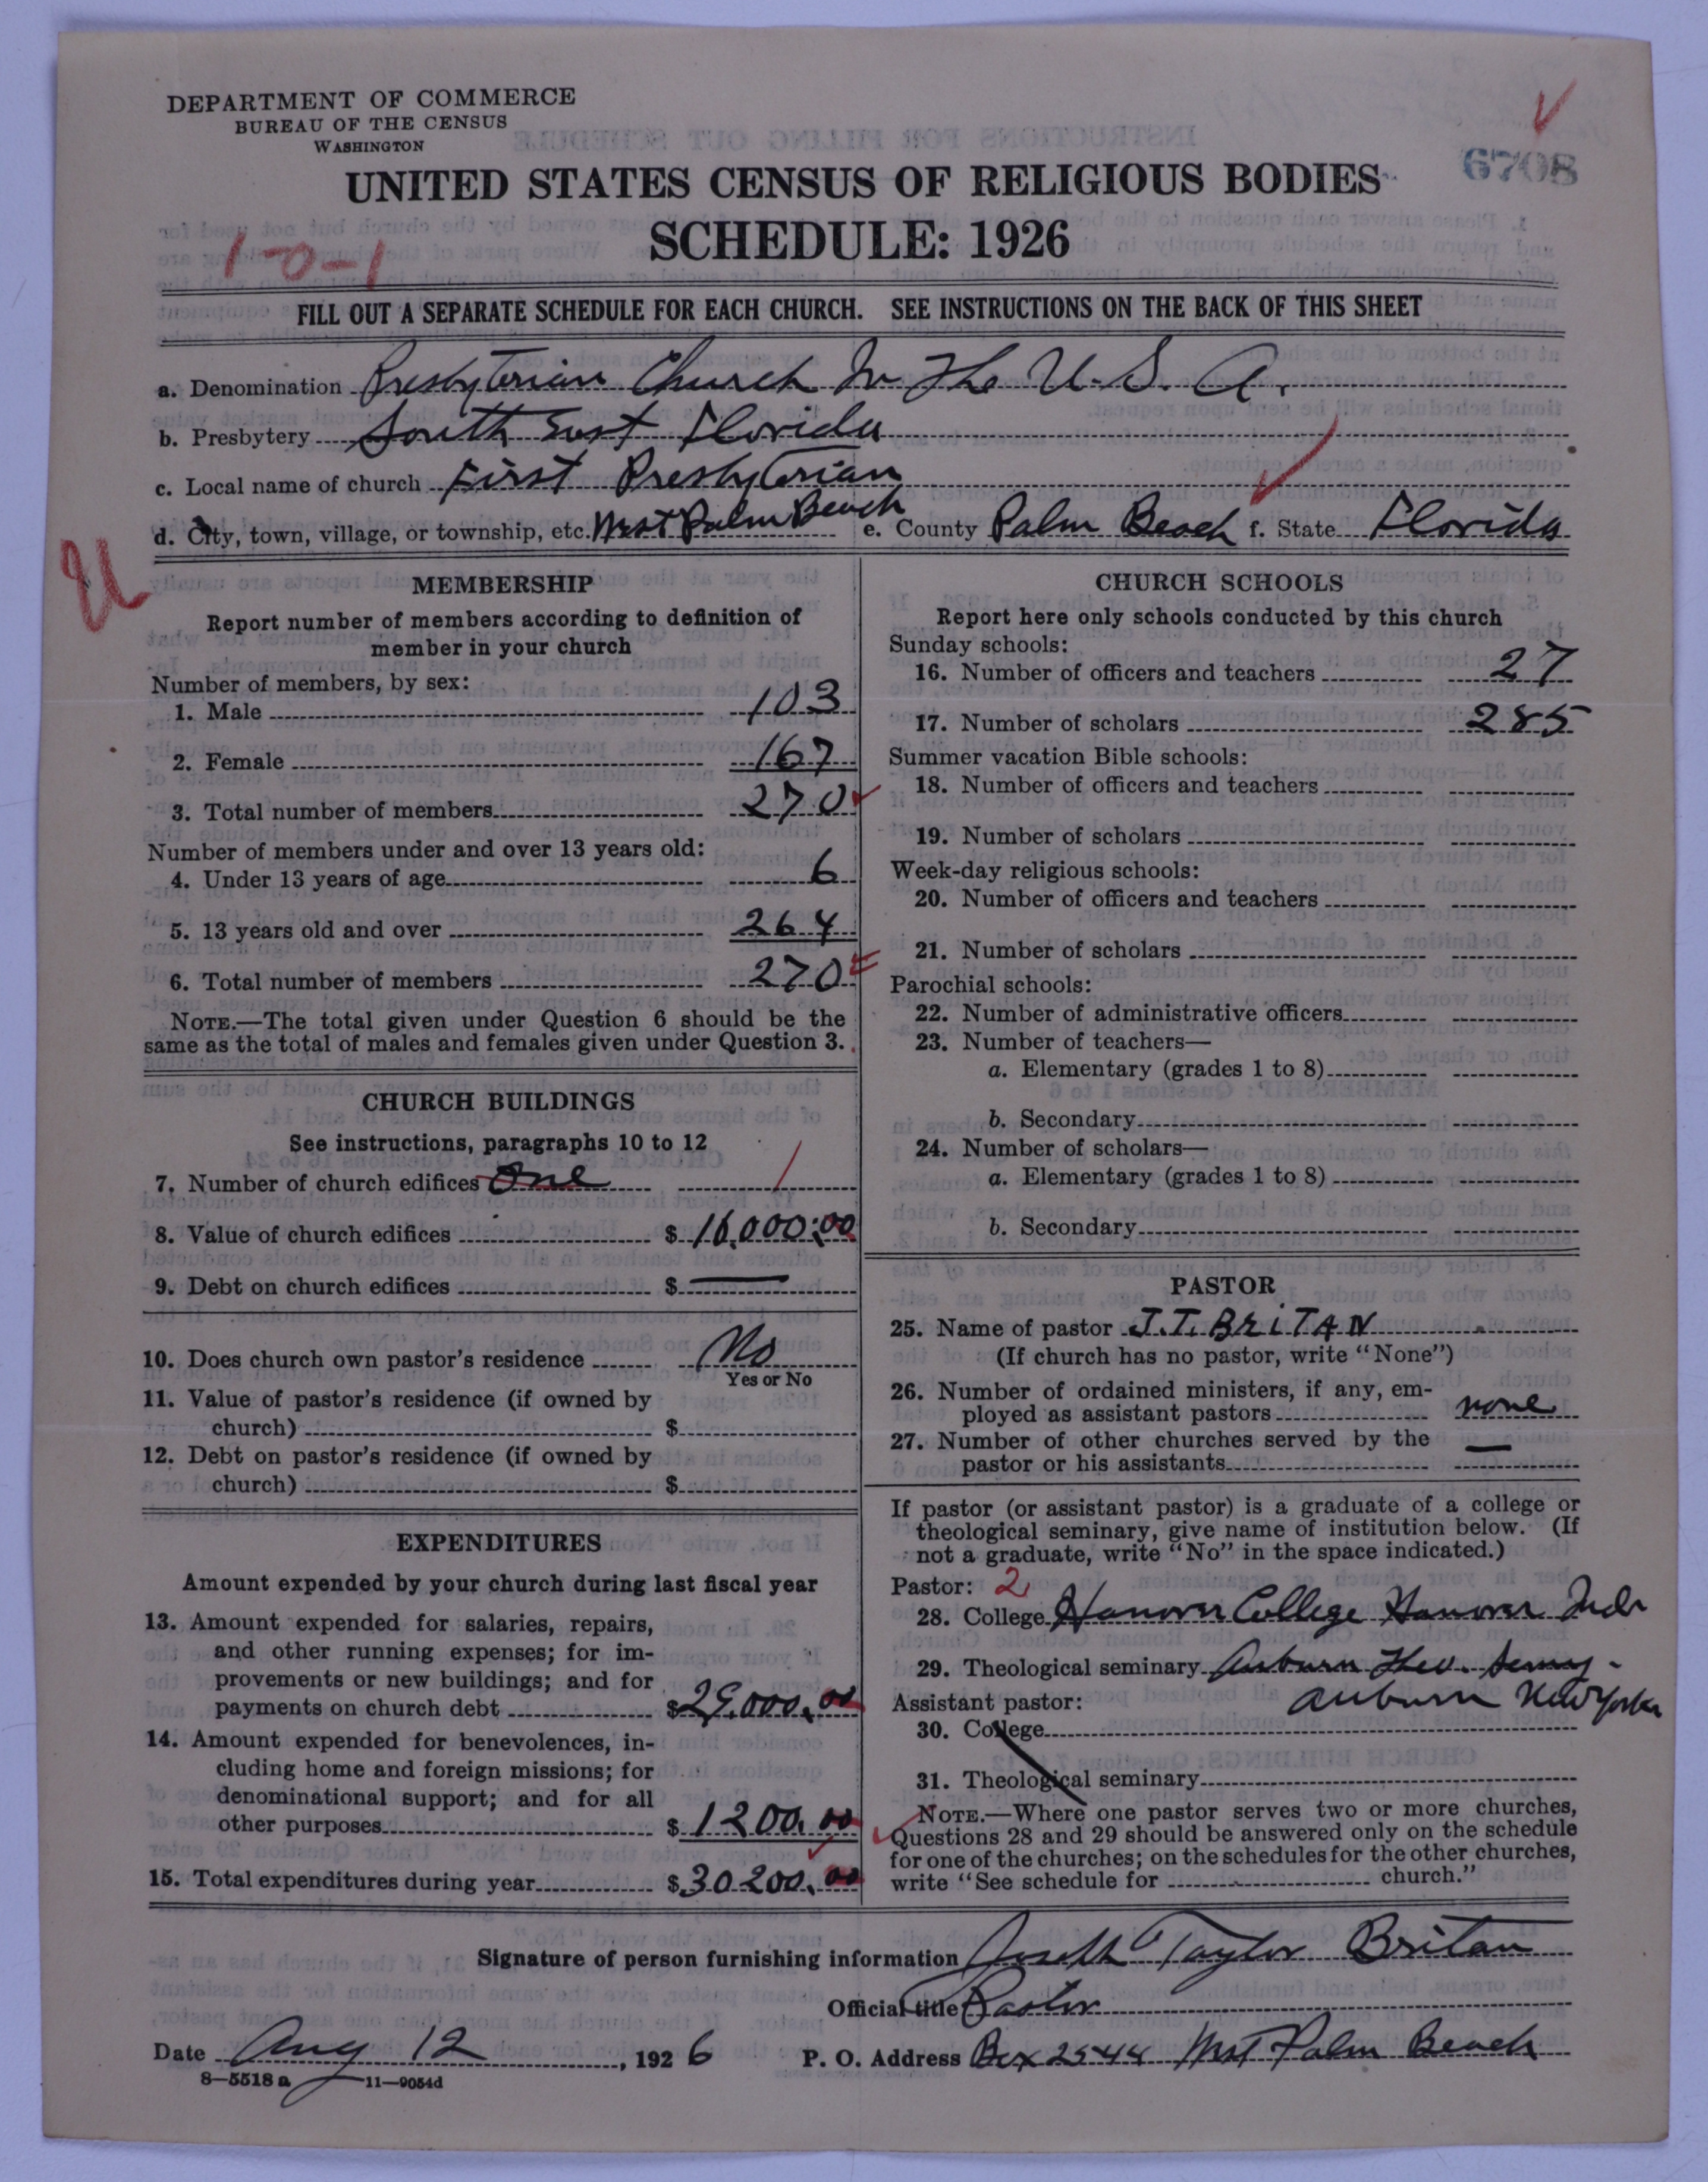 DEPARTMENT OF COMMERCE
BUREAU OF THE CENSUS
WASHINGTON
6708
UNITED STATES CENSUS OF RELIGIOUS BODIES
SCHEDULE: 1926
1-0-1
FILL OUT A SEPARATE SCHEDULE FOR EACH CHURCH. SEE INSTRUCTIONS ON THE BACK OF THIS SHEET
a. Denomination Presbyterian Church In The U.S. A.
b. Presbytery South East Florida
c. Local name of church First Presbyterian
d. City, town, village, or township, etc. West Palm Beach e. County Palm Beach f. State Florida
MEMBERSHIP
Report number of members according to definition of
member in your church
Number of members, by sex:
1. Male 103
2. Female 167
3. Total number of members 270
Number of members under and over 13 years old:
4. Under 13 years of age 6
5. 13 years old and over 264
6. Total number of members 270
NOTE.—The total given under Question 6 should be the
same as the total of males and females given under Question 3.
CHURCH BUILDINGS
See instructions, paragraphs 10 to 12
7. Number of church edifices One 1
8. Value of church edifices $ 16,000.00
9. Debt on church edifices $ —
10. Does church own pastor's residence No
Yes or No
11. Value of pastor's residence (if owned by
church) $
12. Debt on pastor's residence (if owned by
church) $
EXPENDITURES
Amount expended by your church during last fiscal year
13. Amount expended for salaries, repairs,
and other running expenses; for im-
provements or new buildings; and for
payments on church debt $ 29,000.00
14. Amount expended for benevolences, in-
cluding home and foreign missions; for
denominational support; and for all
other purposes $ 1200.00
15. Total expenditures during year $ 30200.00
CHURCH SCHOOLS
Report here only schools conducted by this church
Sunday schools:
16. Number of officers and teachers 27
17. Number of scholars 285
Summer vacation Bible schools:
18. Number of officers and teachers
19. Number of scholars
Week-day religious schools:
20. Number of officers and teachers
21. Number of scholars
Parochial schools:
22. Number of administrative officers
23. Number of teachers—
a. Elementary (grades 1 to 8)
b. Secondary
24. Number of scholars—
a. Elementary (grades 1 to 8)
b. Secondary
PASTOR
25. Name of pastor J.T. BRiTAN
(If church has no pastor, write "None")
26. Number of ordained ministers, if any, em-
ployed as assistant pastors none
27. Number of other churches served by the
pastor or his assistants —
If pastor (or assistant pastor) is a graduate of a college or
theological seminary, give name of institution below. (If
not a graduate, write "No" in the space indicated.)
Pastor: 2
28. College Hanover College Hanover Ind
29. Theological seminary Auburn Theo. Semy.
Auburn New York
Assistant pastor:
30. College
31. Theological seminary
NOTE.—Where one pastor serves two or more churches,
Questions 28 and 29 should be answered only on the schedule
for one of the churches; on the schedules for the other churches,
write "See schedule for church."
Signature of person furnishing information Joseph Taylor Britan
Official title Pastor
Date Aug 12, 1926 P. O. Address Box 2544 West Palm Beach
8—5518 a 11—9054d